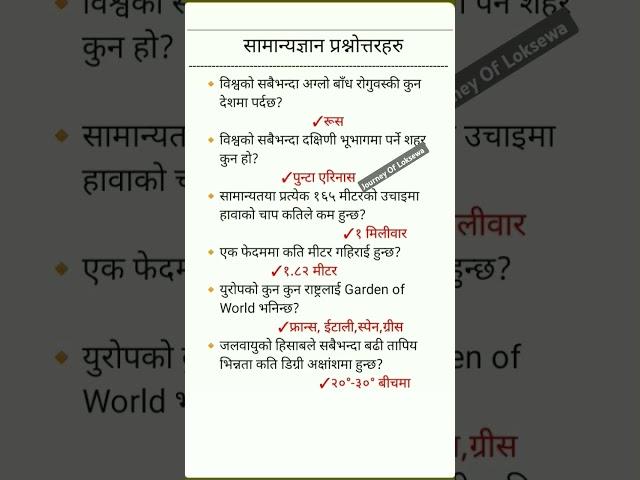 सामान्यज्ञान प्रश्नोत्तरहरु
विश्वको सबैभन्दा अग्लो बाँध रोगुवस्की कुन
देशमा पर्दछ?
✓रूस
विश्वको सबैभन्दा दक्षिणी भूभागमा पर्ने शहर
कुन हो?
✓पुन्टा एरिनास
Journey Of Loksewa
सामान्यतया प्रत्येक १६५ मीटरको उचाइमा
हावाको चाप कतिले कम हुन्छ?
✓१ मिलीवार
एक फेदममा कति मीटर गहिराई हुन्छ?
✓१.८२ मीटर
युरोपको कुन कुन राष्ट्रलाई Garden of
World भनिन्छ?
✓फ्रान्स, ईटाली,स्पेन,ग्रीस
जलवायुको हिसाबले सबैभन्दा बढी तापिय
भिन्नता कति डिग्री अक्षांशमा हुन्छ?
✓२०°-३०° बीचमा
कुन हो?
ney Of Loksewa
सामान्यत
उचाइमा
हावाको च
लीवार
एक फेदमम
न्छ?
युरोपको
en of
World भ
,ग्रीस